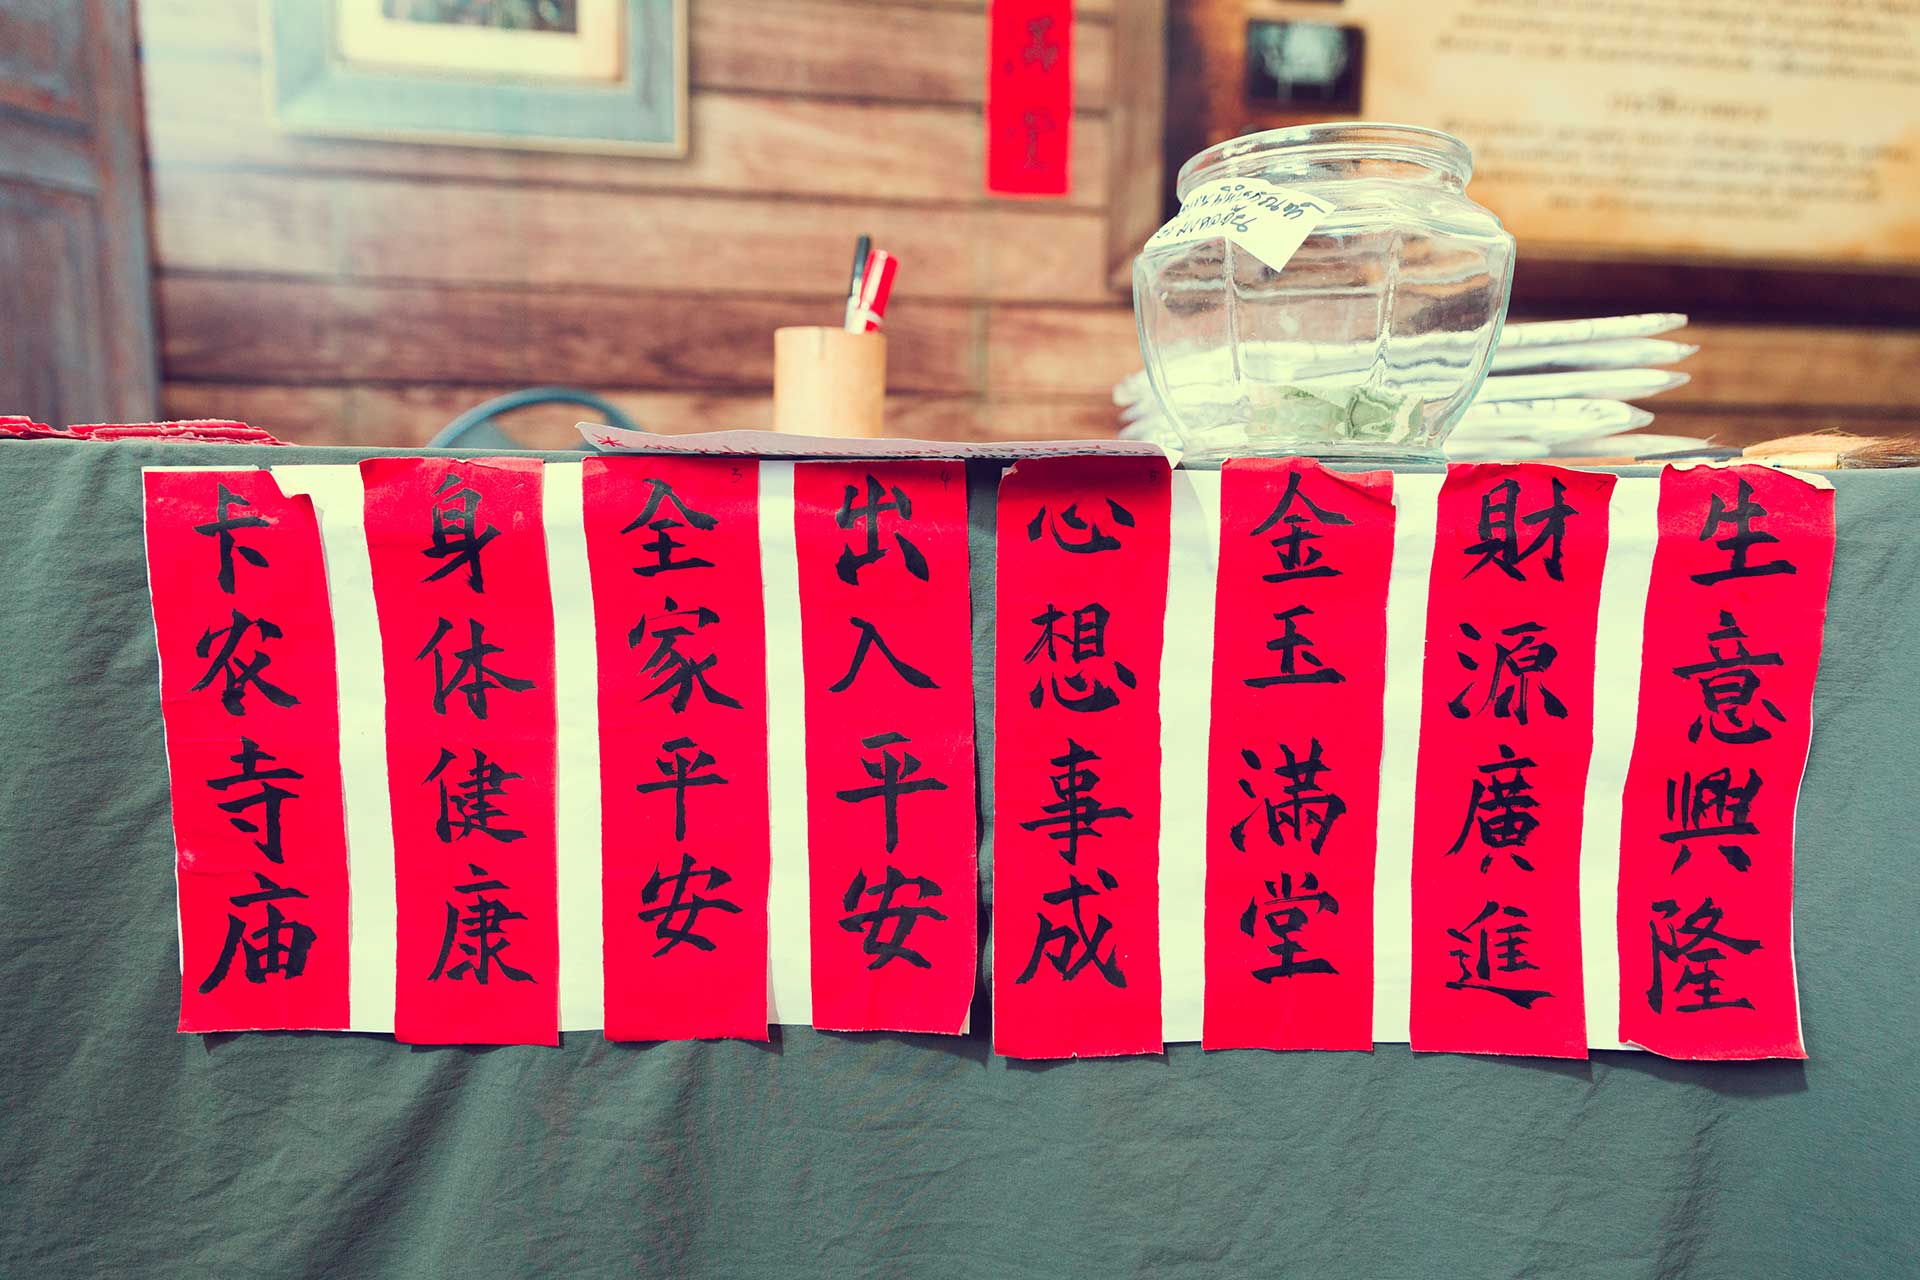 卡农寺庙
身体健康
全家平安
出入平安
心想事成
金玉滿堂
財源廣進
生意興隆
3
4
5
7